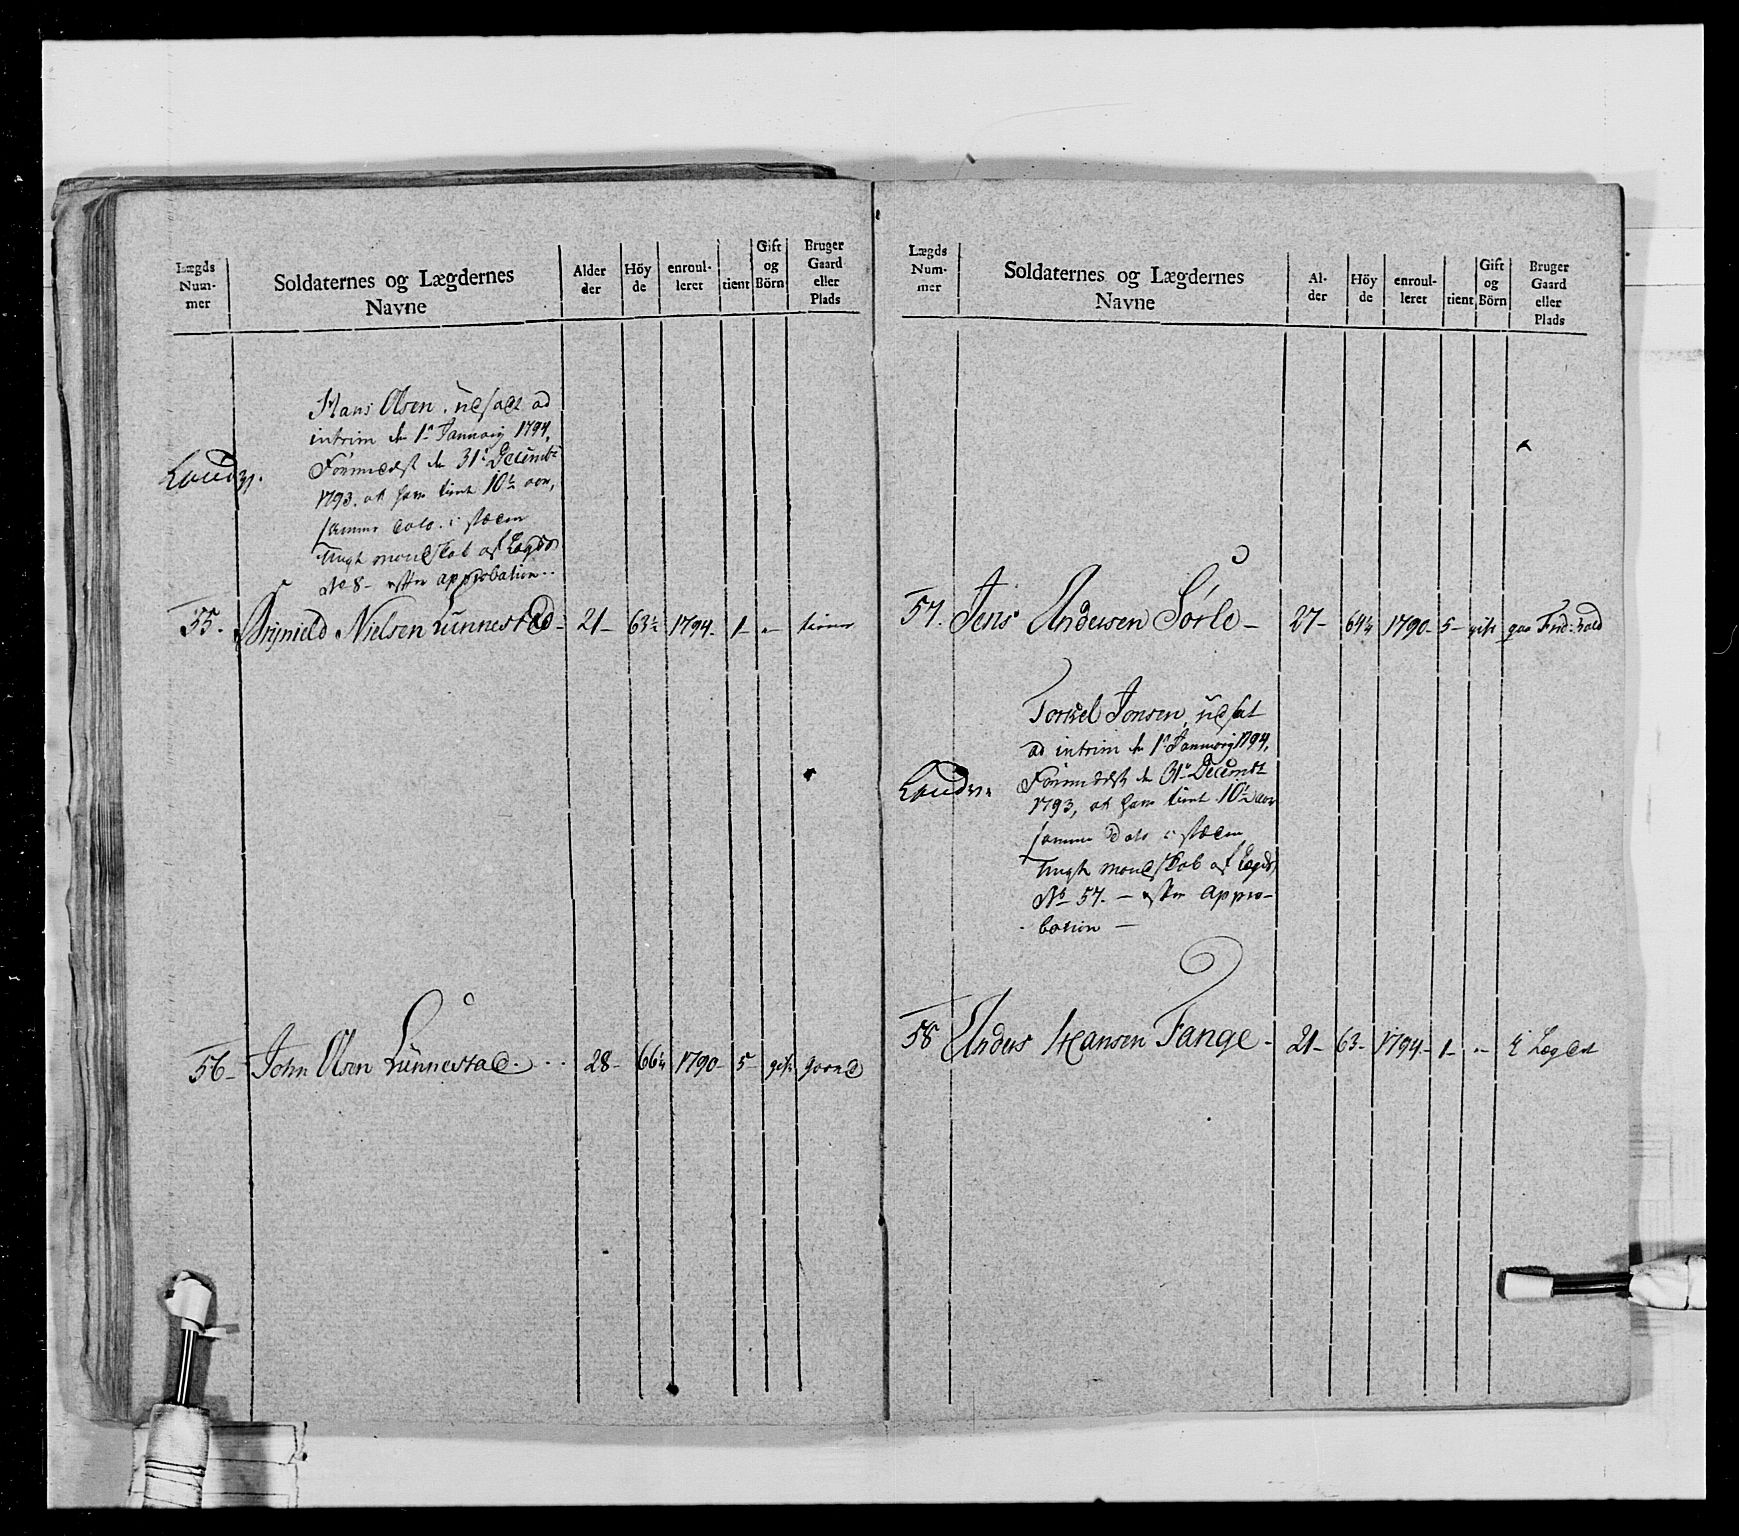 Lægds Nummer
Soldaternes og Lægdernes Navne
Alder
Höyde
enroulleret
tient
Gift og Börn
Bruger Gaard eller Plads
Hans Olsen. udsadt ad
intrim den 1. Januarij 1794,
31. Decembr
1793. at have tient 10 aar,
samme dato. i stæden
af Lægds
No 8 - efter approbation..
55. Brynield Nielsen Lunnestad - 21 - 63½ 1794 - 1 - - tiener
56 - John Olsen Lunnestad. - 28 - 66¼ 1790 - 5 - gift gaard
Lægds Nummer
Soldaternes og Lægdernes Navne
Alder
Höyde
enroulleret
tient
Gift og Börn
Bruger Gaard eller Plads
57. Jens Andersen Sörle - 27 - 64¼ 1790 - 5 - gift gaa
Torkel Jonsen, udsat
ad intrim den 1. Januarij 1794,
31. Decembr
1793, at have tient 10 aar
samme Dato i stæden
af Lægds
No 57. - efter Appro-
bation -
58 Anders Hansen Fange - 21 - 63 - 1794 - 1 - - i Lægdet